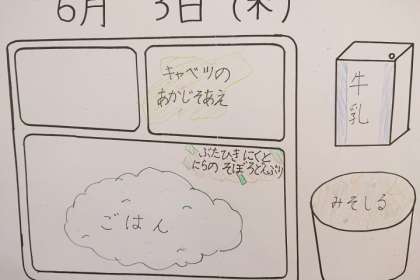 6月 3日(木)
キャベツの
あかじそあえ
牛
乳
ぶたひきにくと
にらの そぼろどんぶり
ごはん
みそしる